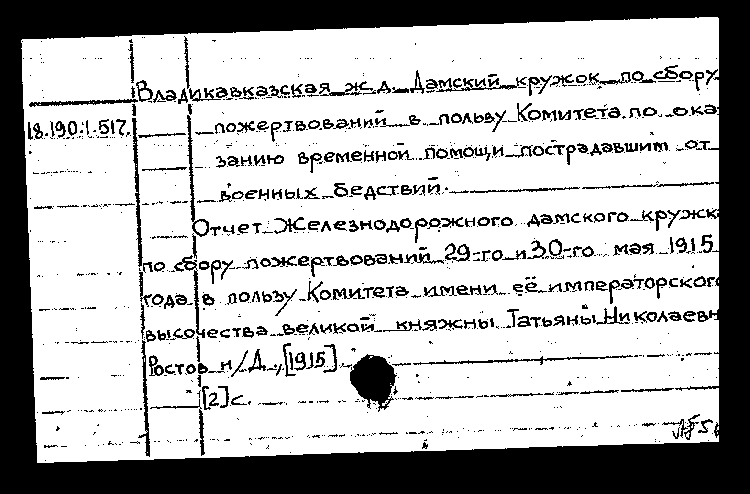 Владикавказская ж.д. Дамский кружок по сбору
18.190.1.517. пожертвований в пользу Комитета по ока
занию временной помощи пострадавшим от
военных бедствий.
Отчет Железнодорожного дамского кружк
по сбору пожертвований 29-го и 30-го мая 1915
года в пользу Комитета имени её императорского
высочества великой княжны Татьяны Николаевн
Ростов н/Д., [1915]
[2] с.